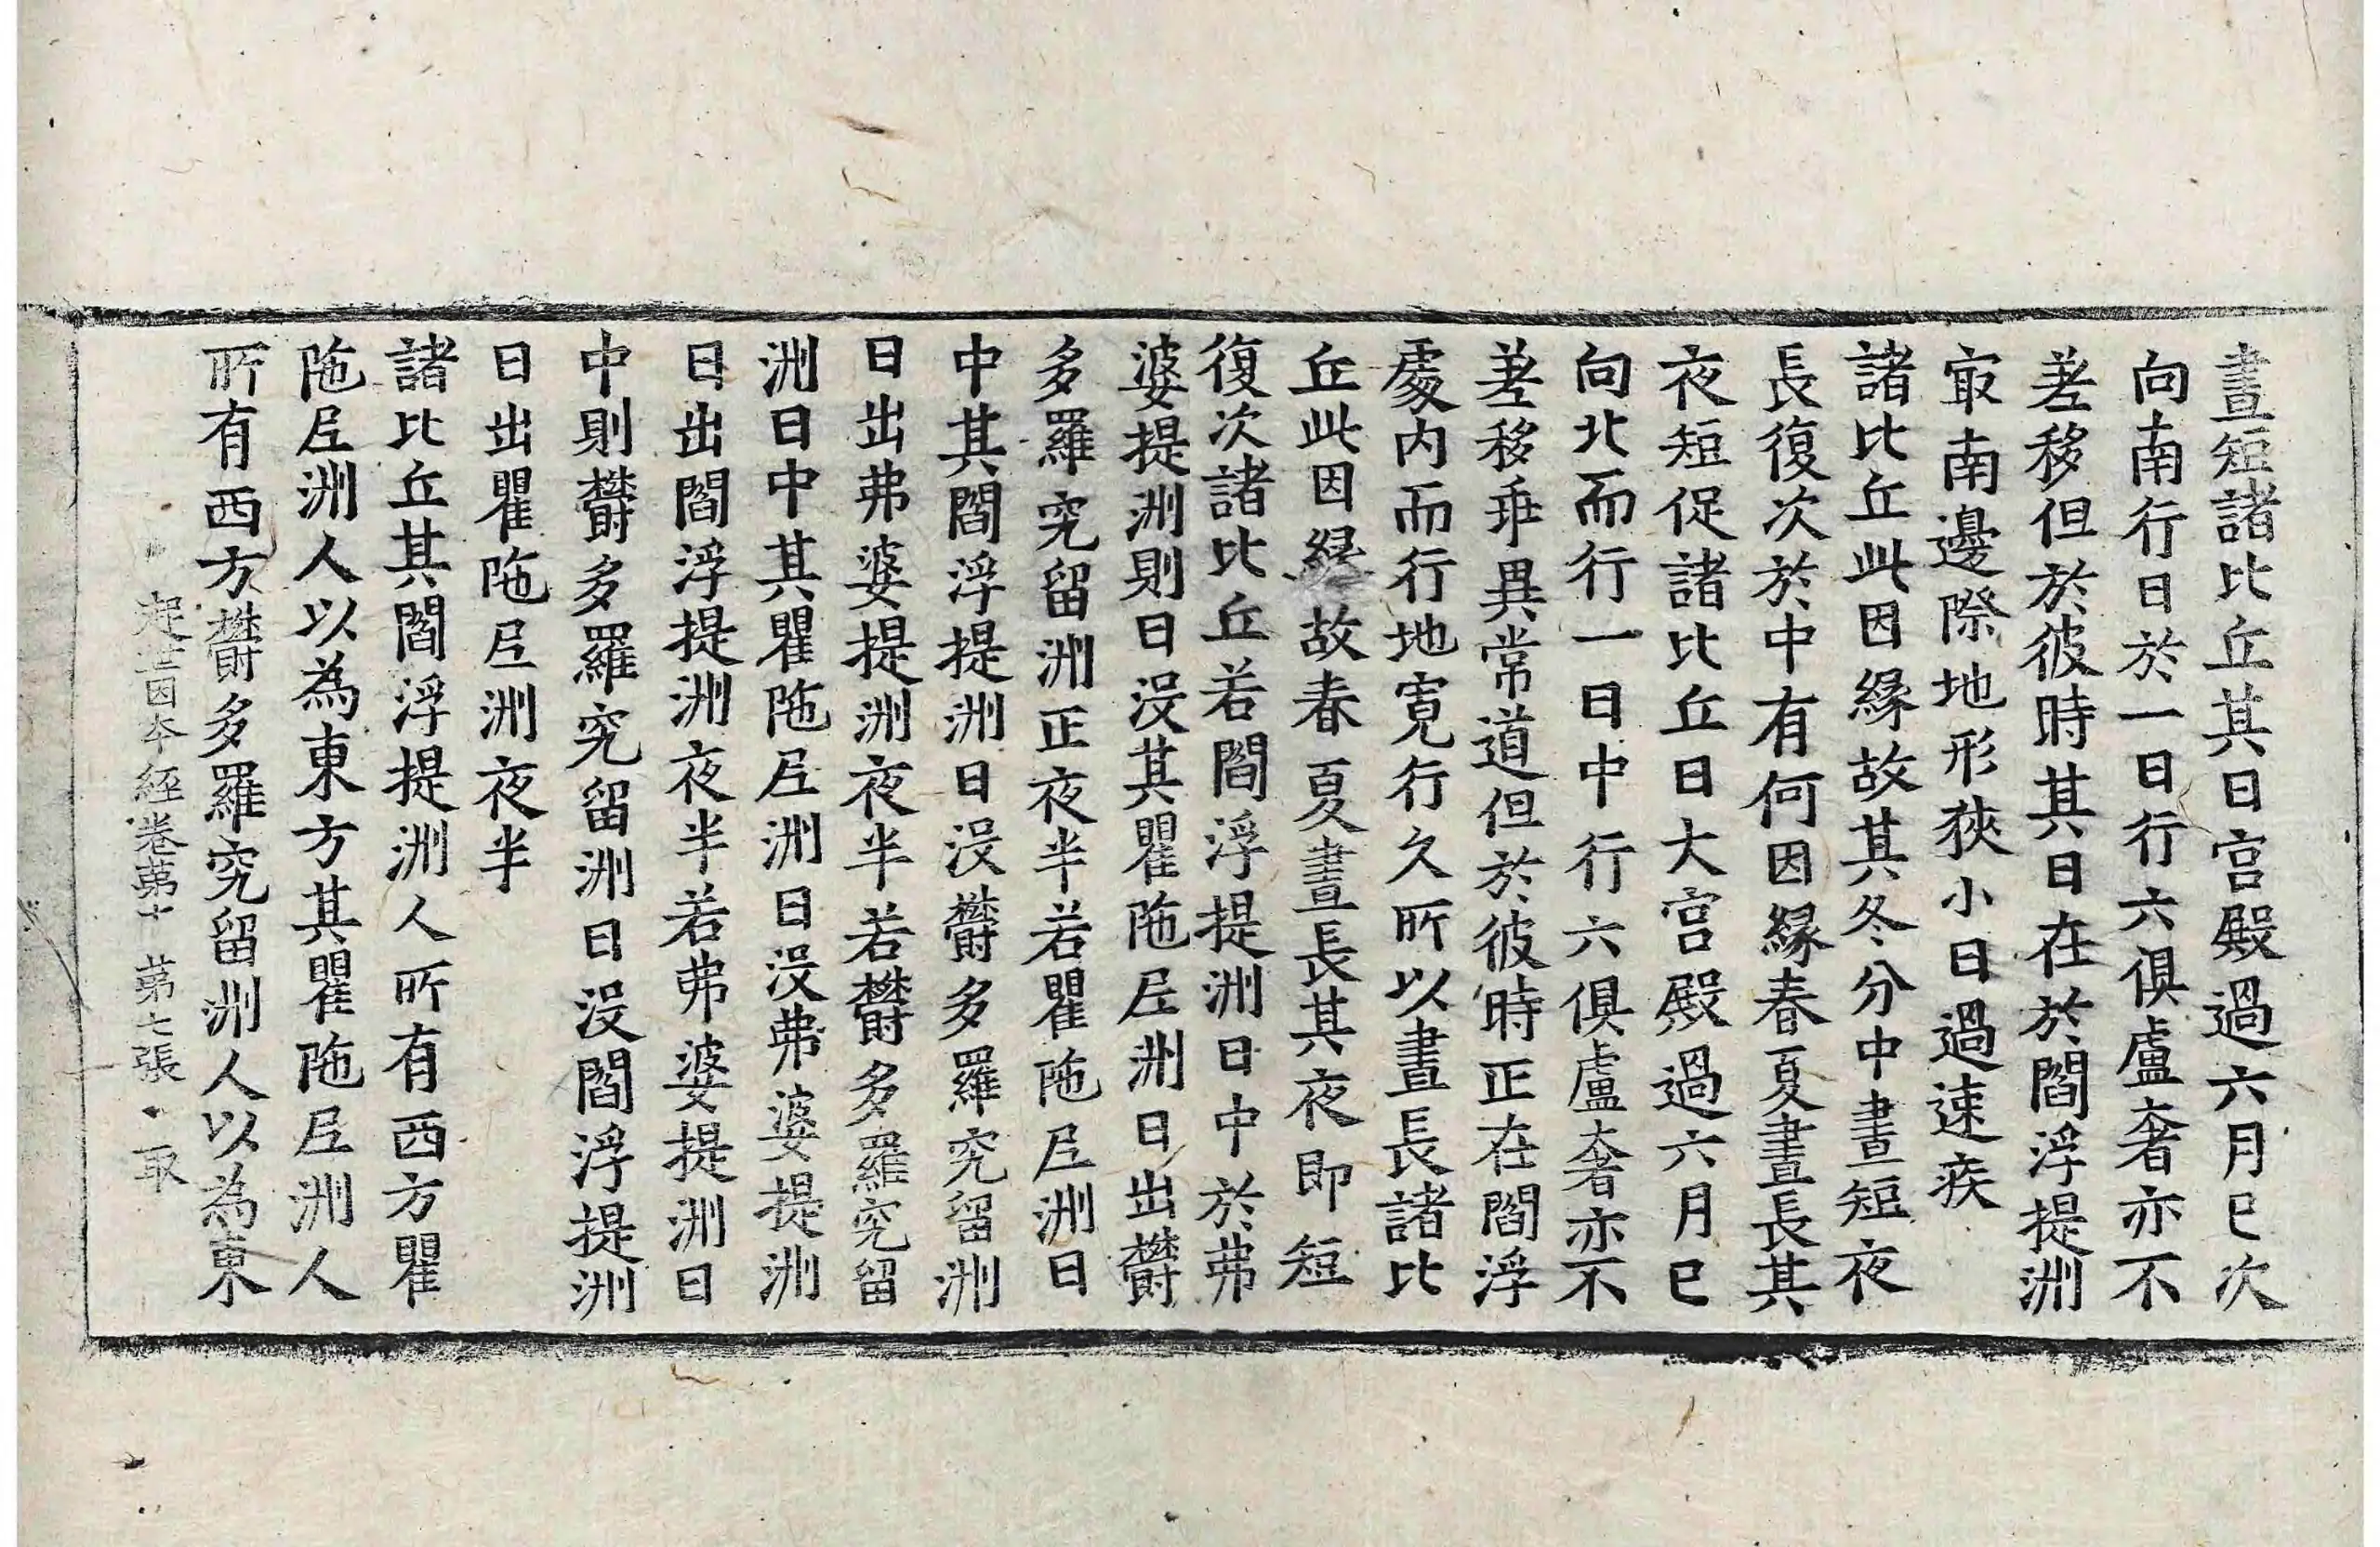 晝短諸比丘其日宮殿過六月已次
向南行日於一日行六俱盧奢亦不
差移但於彼時其日在於閻浮提洲
冣南邊際地形狹小日過速疾
諸比丘此因緣故其冬分中晝短夜
長復次於中有何因緣春夏晝長其
夜短促諸比丘日大宮殿過六月已
向北而行一日中行六俱盧奢亦不
差移乖異常道但於彼時正在閻浮
處內而行地寬行久所以晝長諸比
丘此因緣故春夏晝長其夜即短
復次諸比丘若閻浮提洲日中於弗
婆提洲則日沒其瞿陁尼洲日出欝
多羅究留洲正夜半若瞿陁尼洲日
中其閻浮提洲日沒欝多羅究留洲
日出弗婆提洲夜半若欝多羅究留
洲日中其瞿陁尼洲日沒弗婆提洲
日出閻浮提洲夜半若弗婆提洲日
中則欝多羅究留洲日沒閻浮提洲
日出瞿陁尼洲夜半
諸比丘其閻浮提洲人所有西方瞿
陁尼洲人以為東方其瞿陁尼洲人
所有西方欝多羅究留洲人以為東
起世因本經卷第十　第七張　取